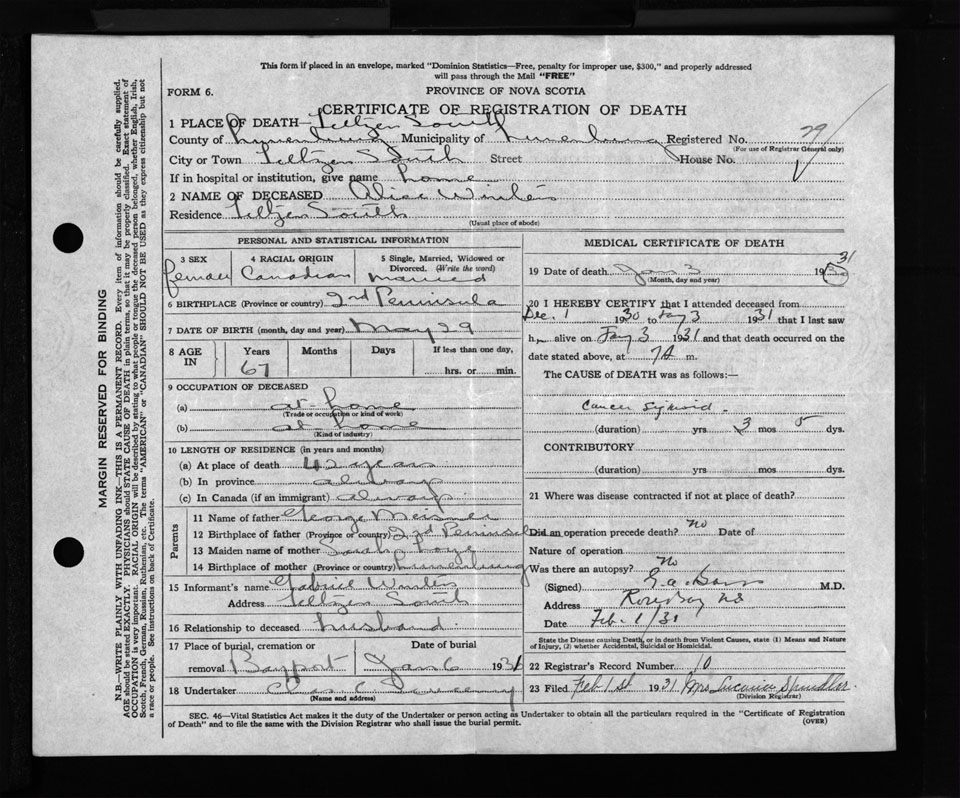 This form if placed in an envelope, marked "Dominion Statistics—Free, penalty for improper use, $300," and properly addressed
will pass through the Mail "FREE"
FORM 6.
PROVINCE OF NOVA SCOTIA
CERTIFICATE OF REGISTRATION OF DEATH
1 PLACE OF DEATH— Feltzen South
County of Lunenburg Municipality of Lunenburg Registered No. 29
(For use of Registrar General only)
City or Town Feltzen South Street House No.
If in hospital or institution, give name home
2 NAME OF DECEASED Alice Winters
Residence Feltzen South
(Usual place of abode)
PERSONAL AND STATISTICAL INFORMATION
3 SEX 4 RACIAL ORIGIN 5 Single, Married, Widowed or Divorced. (Write the word)
female Canadian married
6 BIRTHPLACE (Province or country) 2nd Peninsula
7 DATE OF BIRTH (month, day and year) May 29
8 AGE IN Years Months Days If less than one day,
67 hrs. or min.
9 OCCUPATION OF DECEASED
(a) at home
(Trade or occupation or kind of work)
(b) at home
(Kind of industry)
10 LENGTH OF RESIDENCE (in years and months)
(a) At place of death 42 years
(b) In province always
(c) In Canada (if an immigrant) always
Parents
11 Name of father George Meisner
12 Birthplace of father (Province or country) 2nd Peninsul
13 Maiden name of mother Sarah
14 Birthplace of mother (Province or country) Lunenburg
15 Informant's name Gabriel Winters
Address Feltzen South
16 Relationship to deceased husband
17 Place of burial, cremation or removal Date of burial
Bayport Jan 6 1931
18 Undertaker Chas
(Name and address)
MEDICAL CERTIFICATE OF DEATH
19 Date of death Jan 3 1930 31
(Month, day and year)
20 I HEREBY CERTIFY that I attended deceased from
Dec. 1 1930 to Jany 3 1931 that I last saw
h er alive on Jany 3 1931 and that death occurred on the
date stated above, at 7 A m.
The CAUSE of DEATH was as follows:—
Cancer Sigmoid.
(duration) yrs 3 mos 5 dys.
CONTRIBUTORY
(duration) yrs mos dys.
21 Where was disease contracted if not at place of death?
Did an operation precede death? no Date of
Nature of operation
Was there an autopsy? No
(Signed) M.D.
Address Rose Bay NS
Date Feb. 1/31
State the Disease causing Death, or in death from Violent Causes, state (1) Means and Nature
of Injury, (2) whether Accidental, Suicidal or Homicidal.
22 Registrar's Record Number 10
23 Filed Feb 1st 1931 Mrs Lucania Spindler
(Division Registrar)
SEC. 46—Vital Statistics Act makes it the duty of the Undertaker or person acting as Undertaker to obtain all the particulars required in the "Certificate of Registration
of Death" and to file the same with the Division Registrar who shall issue the burial permit. (OVER)
MARGIN RESERVED FOR BINDING
N.B.—WRITE PLAINLY WITH UNFADING INK—THIS IS A PERMANENT RECORD. Every item of information should be carefully supplied.
AGE should be stated EXACTLY. PHYSICIANS should STATE CAUSE OF DEATH in plain terms, so that it may be properly classified. Exact statement of
OCCUPATION is very important. RACIAL ORIGIN will be described by stating to what people or tongue the deceased person belonged, whether English, Irish,
Scotch, French, German, Russian, Ruthenian, etc. The terms "AMERICAN" or "CANADIAN" SHOULD NOT BE USED as they express citizenship but not
a race or people. See instructions on back of Certificate.